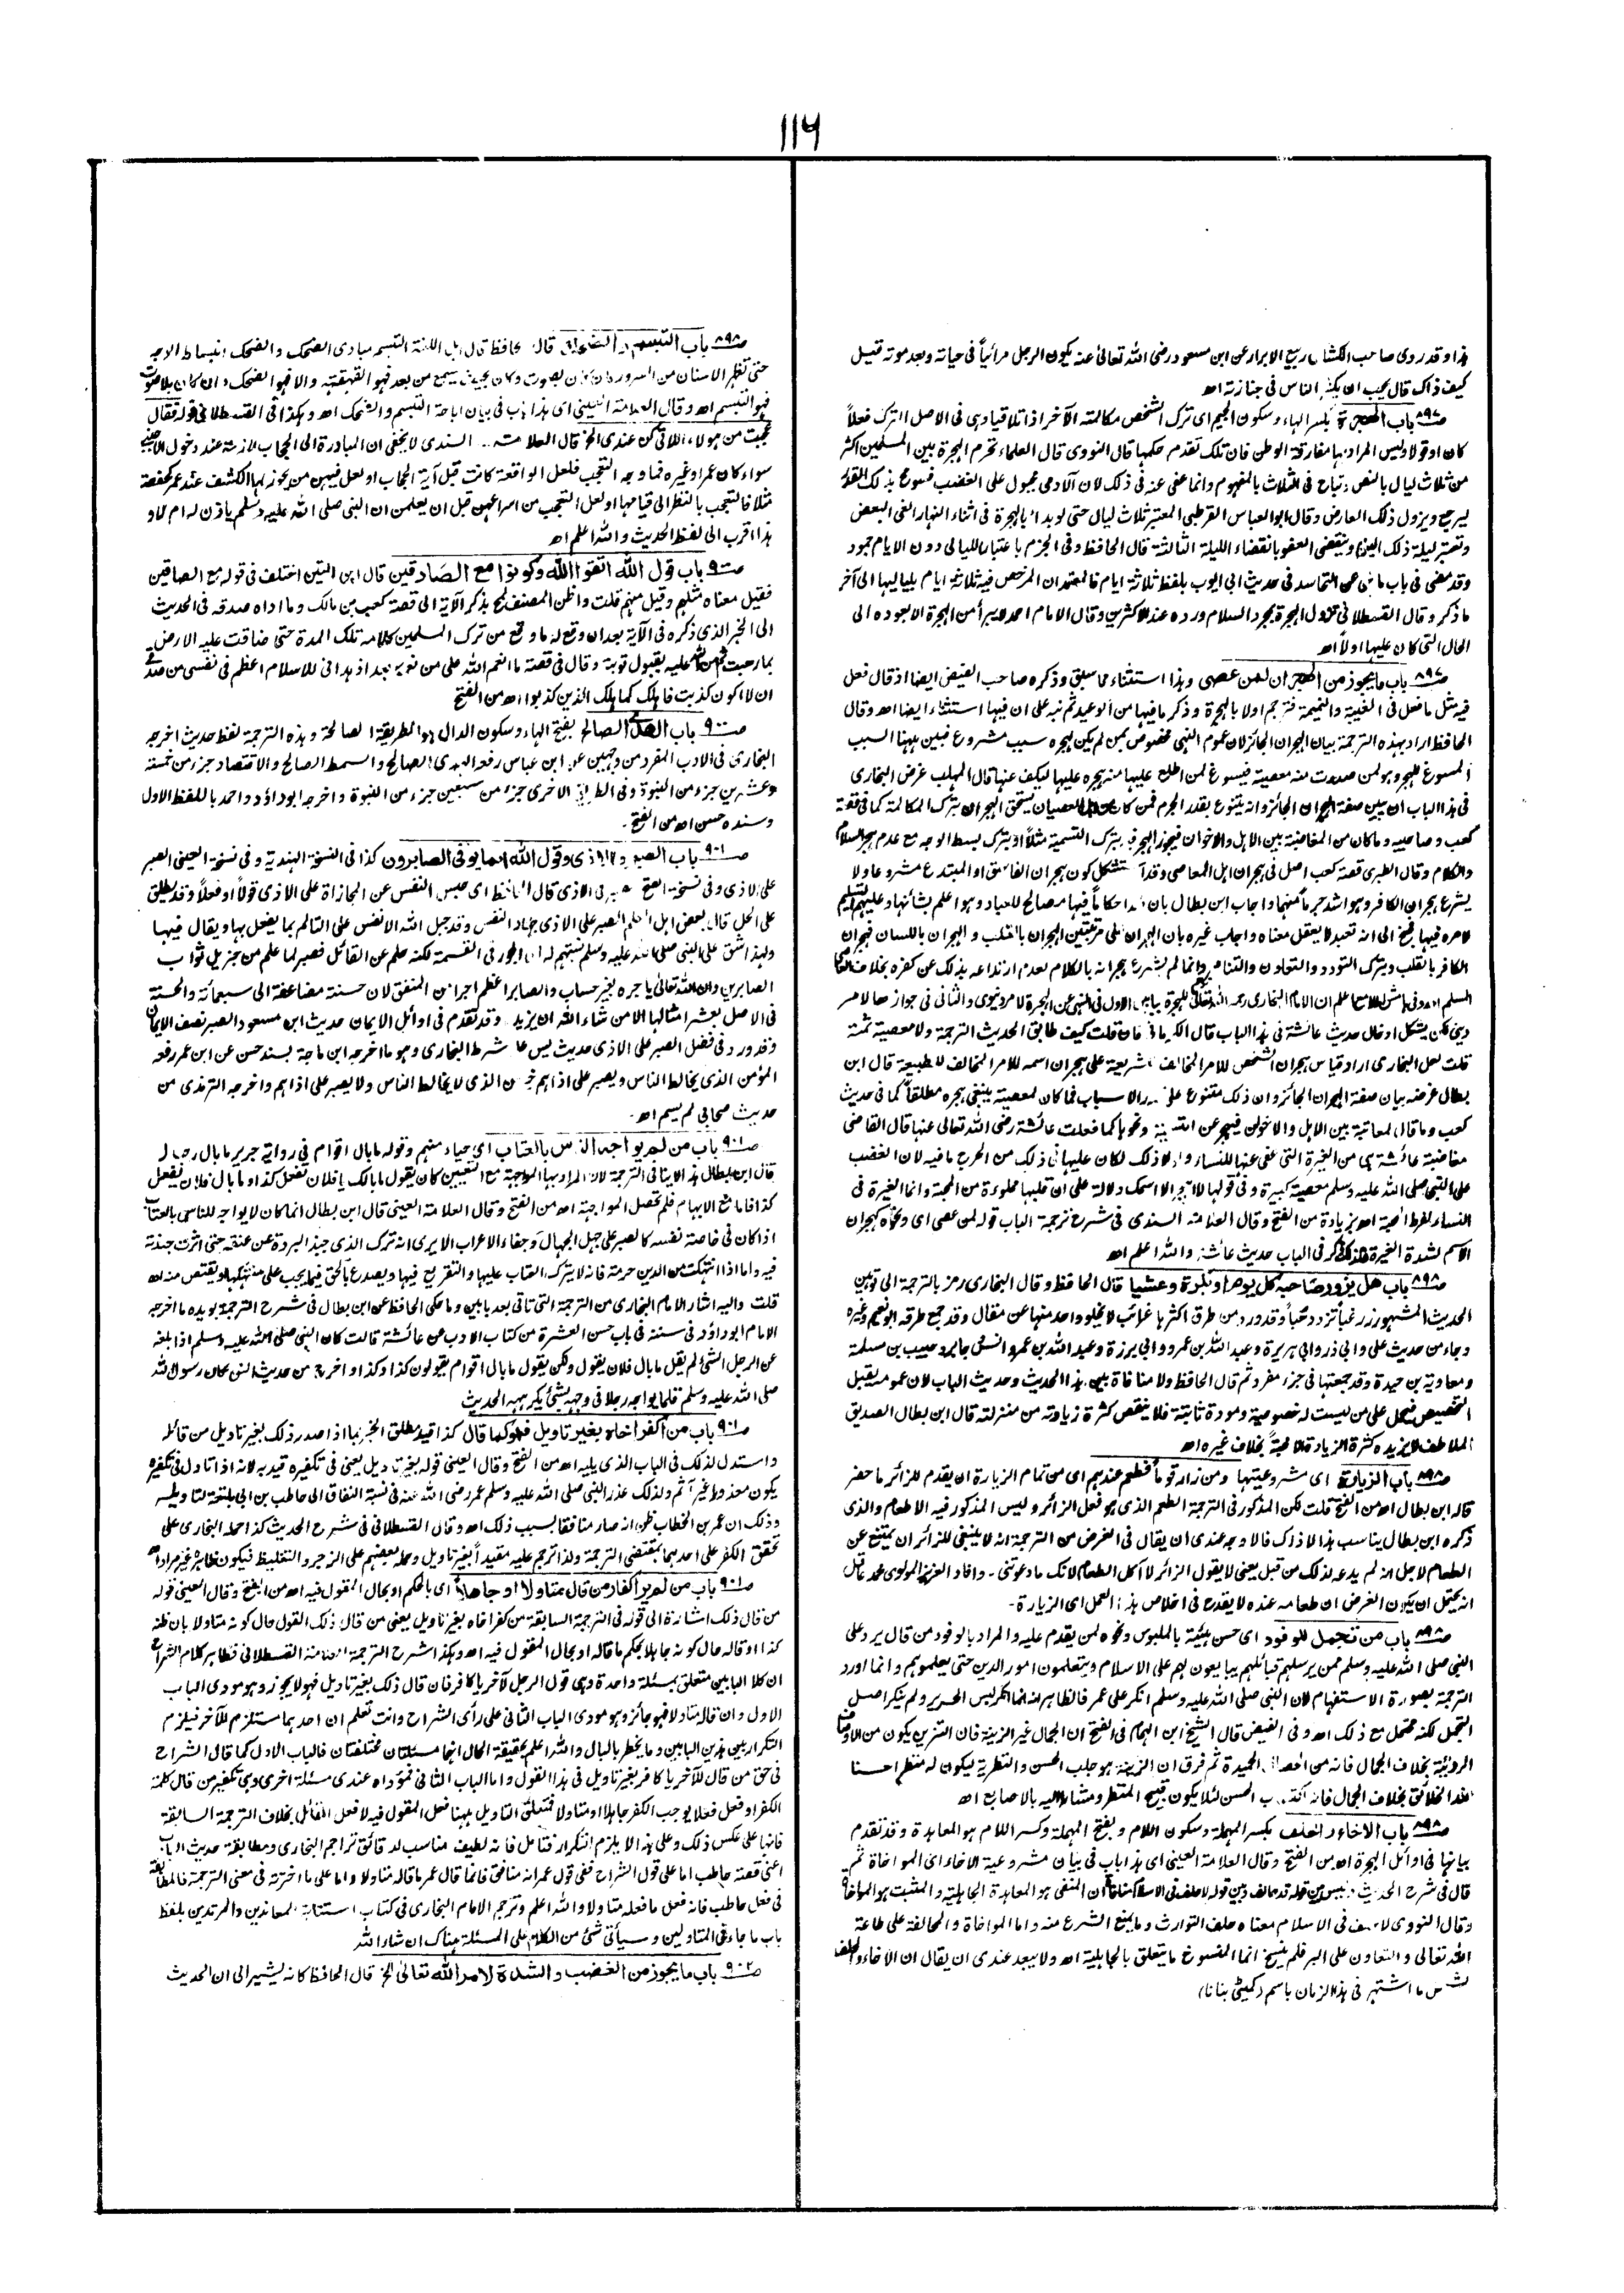 ١١٦
هذا وقد روى صاحب الكشاف ربيع الابرار عن ابن مسعود رضى الله تعالى عنه يكون الرجل مرائياً فى حياته وبعد موته قيل
كيف ذاك قال يحب ان يكثر الناس فى جنازته اھ
ص٨٩٧ باب الهجرة بكسر الهاء وسكون الجيم اى ترك الشخص مكالمة الآخر اذا تلاقيا وهى فى الاصل الترك فعلاً
كان او قولا وليس المراد بها مفارقة الوطن فان تلك تقدم حكمها قال النووى قال العلماء تحرم الهجرة بين المسلمين اكثر
من ثلاث ليال بالنص وتباح فى الثلاث بالمفهوم وانما عفى عنه فى ذلك لان الآدمى مجبول على الغضب فسومح بذلك القدر
ليرجع ويزول ذلك العارض وقال ابو العباس القرطبى المعتبر ثلاث ليال حتى لو بدا بالهجرة فى اثناء النهار الغى البعض
وتعتبر ليلة ذلك اليوم وينقضى العفو بانقضاء الليلة الثالثة قال الحافظ وفى الجزم باعتبار الليالى دون الايام جمود
وقد مضى فى باب ما نهى عن التحاسد فى حديث ابى ايوب بلفظ ثلاثة ايام فالمعتمد ان المرخص فيه ثلاثة ايام بلياليها الى آخر
ما ذكر وقال القسطلانى تزول الهجرة بمجرد السلام ورده عند الاكثرين وقال الامام احمد لا يبرأ من الهجرة الا بعوده الى
الحال التى كان عليها اولاً اھ
ص٨٩٧ باب ما يجوز من الهجران لمن عصى وهذا استثناء مما سبق وذكره صاحب الفيض ايضا اذ قال فعل
فيه مثل ما فعل فى الغيبة والنميمة فترجم اولا بالهجرة وذكر ما فيها من الوعيد ثم نبه على ان فيها استثناء ايضا اھ وقال
الحافظ اراد بهذه الترجمة بيان الهجران الجائز لان عموم النهى مخصوص بمن لم يكن لهجره سبب مشروع فبين ههنا السبب
المسوغ للهجر وهو لمن صدرت منه معصية فيسوغ لمن اطلع عليها منه هجره عليها ليكف عنها قال المهلب غرض البخارى
فى هذا الباب ان يبين صفة الهجران الجائز وانه يتنوع بقدر الجرم فمن كان من اهل العصيان يستحق الهجران بترك المكالمة كما فى قصة
كعب وصاحبيه وما كان من المغاضبة بين الاهل والاخوان فيجوز الهجر فيه بترك التسمية مثلا او بترك بسط الوجه مع عدم هجر السلام
والكلام وقال الطبرى قصة كعب اصل فى هجران اهل المعاصى وقد استشكل كون هجران الفاسق او المبتدع مشروعا ولا
يشرع هجران الكافر وهو اشد جرماً منهما واجاب ابن بطال بان لله احكاماً فيها مصالح للعباد وهو اعلم بشأنها وعليهم التسليم
لامره فيها فجنح الى انه تعبد لا يعقل معناه واجاب غيره بان الهجران على مرتبتين الهجران بالقلب والهجران باللسان فهجران
الكافر بالقلب وبترك التودد والتعاون والتناصر وانما لم يشرع هجرانه بالكلام لعدم ارتداعه بذلك عن كفره بخلاف العاصى
المسلم اھ وفى هامش اللامع اعلم ان الامام البخارى رحمه الله تعالى للهجرة بابين الاول فى النهى عن الهجرة لامر دنيوى والثانى فى جوازها لامر
دينى لكن يشكل ادخال حديث عائشة فى هذا الباب قال الكرمانى فان قلت كيف طابق الحديث الترجمة ولا معصية ثمة
قلت لعل البخارى اراد قياس هجران الشخص للامر المخالف للشريعة على هجران اسمه للامر المخالف للطبيعة قال ابن
بطال غرضه بيان صفة الهجران الجائز وان ذلك متنوع على قدر الاسباب فما كان لمعصية ينبغى هجره مطلقاً كما فى حديث
كعب وما قال لمعاتبة بين الاهل والاخوان فيهجر عن التسمية ونحوها كما فعلت عائشة رضى الله تعالى عنها قال القاضى
مغاضبة عائشة هى من الغيرة التى عفى عنها للنساء ولولا ذلك لكان عليها فى ذلك من الحرج ما فيه لان الغضب
على النبى صلى الله عليه وسلم معصية كبيرة وفى قولها لا اهجر الا اسمك دلالة على ان قلبها مملوءة من المحبة وانما الغيرة فى
النساء لفرط المحبة اھ بزيادة من الفتح وقال العلامة السندى فى شرح ترجمة الباب قوله لمن عصى اى ونحوه كهجران
الاسم لشدة الغيرة ولذلك ذكر فى الباب حديث عائشة والله اعلم اھ
ص٨٩٨ باب هل يزور صاحبه كل يوم او بكرة وعشيا قال الحافظ وقال البخارى رمز بالترجمة الى توهين
الحديث المشهور زر غباً تزدد حباً وقد ورد من طرق اكثرها غرائب لا يخلو واحد منها عن مقال وقد جمع طرقه ابو نعيم وغيره
وجاء من حديث على وابى ذر وابى هريرة وعبد الله بن عمرو وابى برزة وعبد الله بن عمر وانس وجابر وحبيب بن مسلمة
ومعاوية بن حيدة وقد جمعتها فى جزء مفرد ثم قال الحافظ ولا منافاة بين هذا الحديث وحديث الباب لان عمومه يقبل
التخصيص فيحمل على من ليست له خصوصية ومودة ثابتة فلا ينقص كثرة زيارته من منزلته قال ابن بطال الصديق
الملاطف لا يزيده كثرة الزيارة الا محبةً بخلاف غيره اھ
ص٨٩٨ باب الزيارة اى مشروعيتها ومن زار قوماً فطعم عندهم اى من تمام الزيارة ان يقدم للزائر ما حضر
قاله ابن بطال اھ من الفتح قلت لكن المذكور فى الترجمة الطعم الذى هو فعل الزائر وليس المذكور فيه الاطعام والذى
ذكره ابن بطال يناسب هذا لا ذاك فالاوجه عندى ان يقال فى الغرض من الترجمة انه لا ينبغى للزائر ان يمتنع عن
الطعام لاجل انه لم يدعه لذلك من قبل يعنى لا يقول الزائر لا آكل الطعام لانك ما دعوتنى ۔ وافاد العزيز المولوى محمد عاقل
انه يحتمل ان يكون الغرض ان طعامه عنده لا يقدح فى اخلاص هذا العمل اى الزيارة ۔
ص٨٩٨ باب من تجمل للوفود اى حسن هيئته بالملبوس ونحوه لمن يقدم عليه والمراد بالوفود من قال يرد على
النبى صلى الله عليه وسلم ممن يرسلهم قبائلهم يبايعون لهم على الاسلام ويتعلمون امور الدين حتى يعلموهم وانما اورد
الترجمة بصورة الاستفهام لان النبى صلى الله عليه وسلم انكر على عمر فالظاهر انه انما انكر لبس الحرير ولم ينكر اصل
التجمل لكنه محتمل مع ذلك اھ وفى الفيض قال الشيخ ابن الهمام فى الفتح ان الجمال غير الزينة فان التزين يكون من الاوصاف
الرديئة بخلاف الجمال فانه من الخصال الحميدة ثم فرق ان الزينة هو جلب الحسن والتطرية ليكون له منظر احسنا
عند الخلائق بخلاف الجمال فانه اكتساب الحسن لئلا يكون قبيح المنظر ومشارا اليه بالاصابع اھ
ص٨٩٨ باب الاخاء والحلف بكسر المهملة وسكون اللام وبفتح المهملة وكسر اللام هو المعاهدة وقد تقدم
بيانها فى اوائل الهجرة اھ من الفتح وقال العلامة العينى اى هذا باب فى بيان مشروعية الاخاء اى المواخاة ثم
قال فى شرح الحديث وليس بين قوله قد حالف وبين قوله لا حلف فى الاسلام منافاة لان المنفى هو المعاهدة الجاهلية والمثبت هو المواخاة
وقال النووى لا حلف فى الاسلام معناه حلف التوارث وما يمنع الشرع منه واما المواخاة والمحالفة على طاعة
الله تعالى والتعاون على البر فلم ينسخ انما المنسوخ ما يتعلق بالجاهلية اھ ولا يبعد عندى ان يقال ان الاخاء والحلف
مثل ما اشتهر فى هذا الزمان باسم (كميٹى بنانا)
ص٨٩٨ باب التبسم والضحك قال الحافظ قال اهل اللغة التبسم مبادى الضحك والضحك انبساط الوجه
حتى تظهر الاسنان من السرور فان كان بصوت وكان بحيث يسمع من بعد فهو القهقهة والا فهو الضحك وان كان بلا صوت
فهو التبسم اھ وقال العلامة العينى اى هذا باب فى بيان اباحة التبسم والضحك اھ وهكذا فى القسطلانى قوله فقال
عجبت من هولاء اللاتى كن عندى الخ قال العلامة السندى لا يخفى ان المبادرة الى الحجاب لازمة عند دخول الاجنبى
سواء كان عمر او غيره فما وجه التعجب فلعل الواقعة كانت قبل آية الحجاب او لعل فيهن من يجوز لها الكشف عند عمر كحفصة
مثلا فالتعجب بالنظر الى قيامها او لعل التعجب من اسراعهن قبل ان يعلمن ان النبى صلى الله عليه وسلم يأذن له ام لا و
هذا اقرب الى لفظ الحديث والله اعلم اھ
ص٩٠٠ باب قول الله اتقوا الله وكونوا مع الصادقين قال ابن التين اختلف فى قوله مع الصادقين
فقيل معناه مثلهم وقيل منهم قلت واظن المصنف لمح بذكر الآية الى قصة كعب بن مالك وما اداه صدقه فى الحديث
الى الخير الذى ذكره فى الآية بعد ان وقع له ما وقع من ترك المسلمين كلامه تلك المدة حتى ضاقت عليه الارض
بما رحبت ثم من الله عليه بقبول توبته وقال فى قصة ما انعم الله على من نعمة بعد اذ هدانى للاسلام اعظم فى نفسى من صدقى
ان لا اكون كذبت فاهلك كما هلك الذين كذبوا اھ من الفتح
ص٩٠٠ باب الهدى الصالح بفتح الهاء وسكون الدال هو الطريقة الصالحة وهذه الترجمة لفظ حديث اخرجه
البخارى فى الادب المفرد من وجهين عن ابن عباس رفعه الهدى الصالح والسمت الصالح والاقتصاد جزء من خمسة
وعشرين جزء من النبوة وفى الطريق الاخرى جزء من سبعين جزء من النبوة واخرجه ابو داؤد واحمد باللفظ الاول
وسنده حسن اھ من الفتح ۔
ص٩٠١ باب الصبر والاذى وقول الله انما يوفى الصابرون كذا فى النسخة الهندية وفى نسخة العينى الصبر
على الاذى وفى نسخة الفتح الصبر فى الاذى قال الحافظ اى حبس النفس عن المجازاة على الاذى قولاً او فعلاً وقد يطلق
على الحلم قال بعض اهل العلم الصبر على الاذى جهاد النفس وقد جبل الله الانفس على التالم بما يفعل بها ويقال فيها
ولهذا شق على النبى صلى الله عليه وسلم نسبتهم له الى الجور فى القسمة لكنه حلم عن القائل فصبر لما علم من جزيل ثواب
الصابرين وان الله تعالى ياجره بغير حساب والصابر اعظم اجرا من المنفق لان حسنة مضاعفة الى سبعمائة والحسنة
فى الاصل بعشر امثالها الا من شاء الله ان يزيد وقد تقدم فى اوائل الايمان حديث ابن مسعود الصبر نصف الايمان
وقد ورد فى فضل الصبر على الاذى حديث ليس على شرط البخارى وهو ما اخرجه ابن ماجة بسند حسن عن ابن عمر رفعه
المؤمن الذى يخالط الناس ويصبر على اذاهم خير من الذى لا يخالط الناس ولا يصبر على اذاهم واخرجه الترمذى من
حديث صحابى لم يسم اھ ۔
ص٩٠١ باب من لم يواجه الناس بالعتاب اى حياء منهم وقوله ما بال اقوام فى رواية جرير ما بال رجال
قال ابن بطال هذا لا ينافى الترجمة لان المراد بها المواجهة مع التعيين كان يقول ما بالك يا فلان تفعل كذا وما بال فلان يفعل
كذا فاما مع الابهام فلم تحصل المواجهة اھ من الفتح وقال العلامة العينى قال ابن بطال انما كان لا يواجه للناس بالعتاب
اذا كان فى خاصة نفسه كالصبر على جهل الجهال وجفاء الاعراب الا يرى انه ترك الذى جبذ البردة عن عنقه حتى اثرت جبذته
فيه واما اذا انتهكت من الدين حرمة فانه لا يترك العتاب عليها والتقريع فيها ويصدع بالحق فيما يجب على منتهكها ويقتص منه اھ
قلت واليه اشار الامام البخارى من الترجمة التى تاتى بعد بابين وما حكى الحافظ عن ابن بطال فى شرح الترجمة يويده ما اخرجه
الامام ابو داؤد فى سننه فى باب حسن العشرة من كتاب الادب عن عائشة قالت كان النبى صلى الله عليه وسلم اذا بلغه
عن الرجل الشئ لم يقل ما بال فلان يقول ولكن يقول ما بال اقوام يقولون كذا وكذا واخرج من حديث انس كان رسول الله
صلى الله عليه وسلم قلما يواجه رجلا فى وجهه بشئ يكرهه الحديث
ص٩٠١ باب من اكفر اخاه بغير تاويل فهو كما قال كذا قيد مطلق الخبر بما اذا صدر ذلك بغير تاويل من قائله
واستدل لذلك فى الباب الذى يليه اھ من الفتح وقال العينى قوله بغير تاويل يعنى فى تكفيره قيد به لانه اذا تاول فى تكفيره
يكون معذورا غير آثم ولذلك عذر النبى صلى الله عليه وسلم عمر رضى الله عنه فى نسبة النفاق الى حاطب بن ابى بلتعة لتاويله
وذلك ان عمر بن الخطاب ظن انه صار منافقا بسبب ذلك اھ وقال القسطلانى فى شرح الحديث كذا حمله البخارى على
تحقق الكفر على احدهما بمقتضى الترجمة ولذا ترجم عليه مقيداً بغير تاويل وحمله بعضهم على الزجر والتغليظ فيكون ظاهره غير مراد اھ
ص٩٠١ باب من لم ير اكفار من قال متاولا او جاهلاً اى بالحكم او بحال المقول فيه اھ من الفتح وقال العينى قوله
من قال ذلك اشارة الى قوله فى الترجمة السابقة من كفر اخاه بغير تاويل يعنى من قال ذلك القول حال كونه متاولا بان ظنه
كذا او قاله حال كونه جاهلا بحكم ما قاله او بحال المقول فيه اھ وهكذا شرح الترجمة العلامة القسطلانى فظاهر كلام الشراح
ان كلا البابين متعلق بمسئلة واحدة وهى قول الرجل لآخر يا كافر فان قال ذلك بغير تاويل فهو لا يجوز وهو مودى الباب
الاول وان قاله متاولا فهو جائز وهو مودى الباب الثانى على رأى الشراح وانت تعلم ان احدهما مستلزم للآخر فيلزم
التكرار بين هذين البابين وما يخطر بالبال والله اعلم بحقيقة الحال انهما مسئلتان مختلفتان فالباب الاول كما قال الشراح
فى حق من قال للآخر يا كافر بغير تاويل فى هذا القول واما الباب الثانى فمؤداه عندى مسئلة اخرى وهى تكفير من قال كلمة
الكفر او فعل فعلا يوجب الكفر جاهلا او متاولا فتعلق التاويل ههنا فعل المقول فيه لا فعل القائل بخلاف الترجمة السابقة
فانها على عكس ذلك وعلى هذا لا يلزم التكرار فتامل فانه لطيف مناسب لدقائق تراجم البخارى ومطابقة حديث الباب
اعنى قصة حاطب اما على قول الشراح ففى قول عمر انه منافق فانما قال عمر ما قاله متاولا واما على ما اخترته فى معنى الترجمة فالمطابقة
فى فعل حاطب فانه فعل ما فعله متاولا والله اعلم وترجم الامام البخارى فى كتاب استتابة المعاندين والمرتدين بلفظ
باب ما جاء فى المتاولين وسيأتى شئ من الكلام على المسئلة هناك ان شاء الله
ص٩٠٢ باب ما يجوز من الغضب والشدة لامر الله تعالى الخ قال الحافظ كانه يشير الى ان الحديث